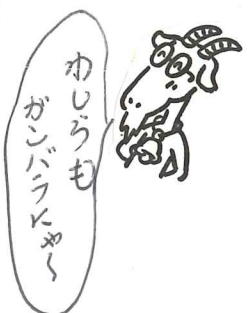 わしらも
ガンバラにゃ〜